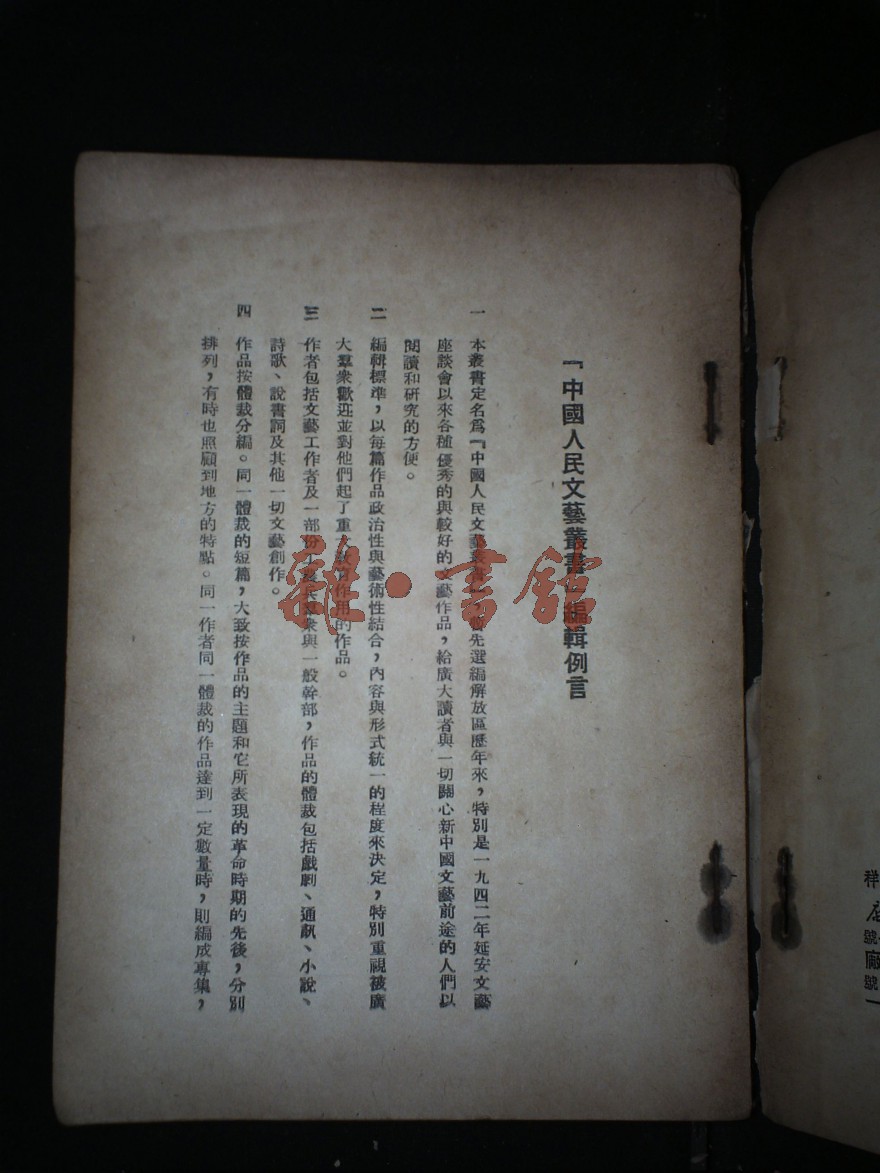 『中國人民文藝叢書』編輯例言
一 本叢書定名為『中國人民文藝叢書』先選編解放區歷年來，特別是一九四二年延安文藝
座談會以來各種優秀的與較好的文藝作品，給廣大讀者與一切關心新中國文藝前途的人們以
閱讀和研究的方便。
二 編輯標準，以每篇作品政治性與藝術性結合，內容與形式統一的程度來決定，特別重視被廣
大羣衆歡迎並對他們起了重大教育作用的作品。
三 作者包括文藝工作者及一部份工農兵羣衆與一般幹部，作品的體裁包括戲劇、通訊、小說、
詩歌、說書詞及其他一切文藝創作。
四 作品按體裁分編。同一體裁的短篇，大致按作品的主題和它所表現的革命時期的先後，分別
排列，有時也照顧到地方的特點。同一作者同一體裁的作品達到一定數量時，則編成專集，
雜·書館
祥
號
廠
號